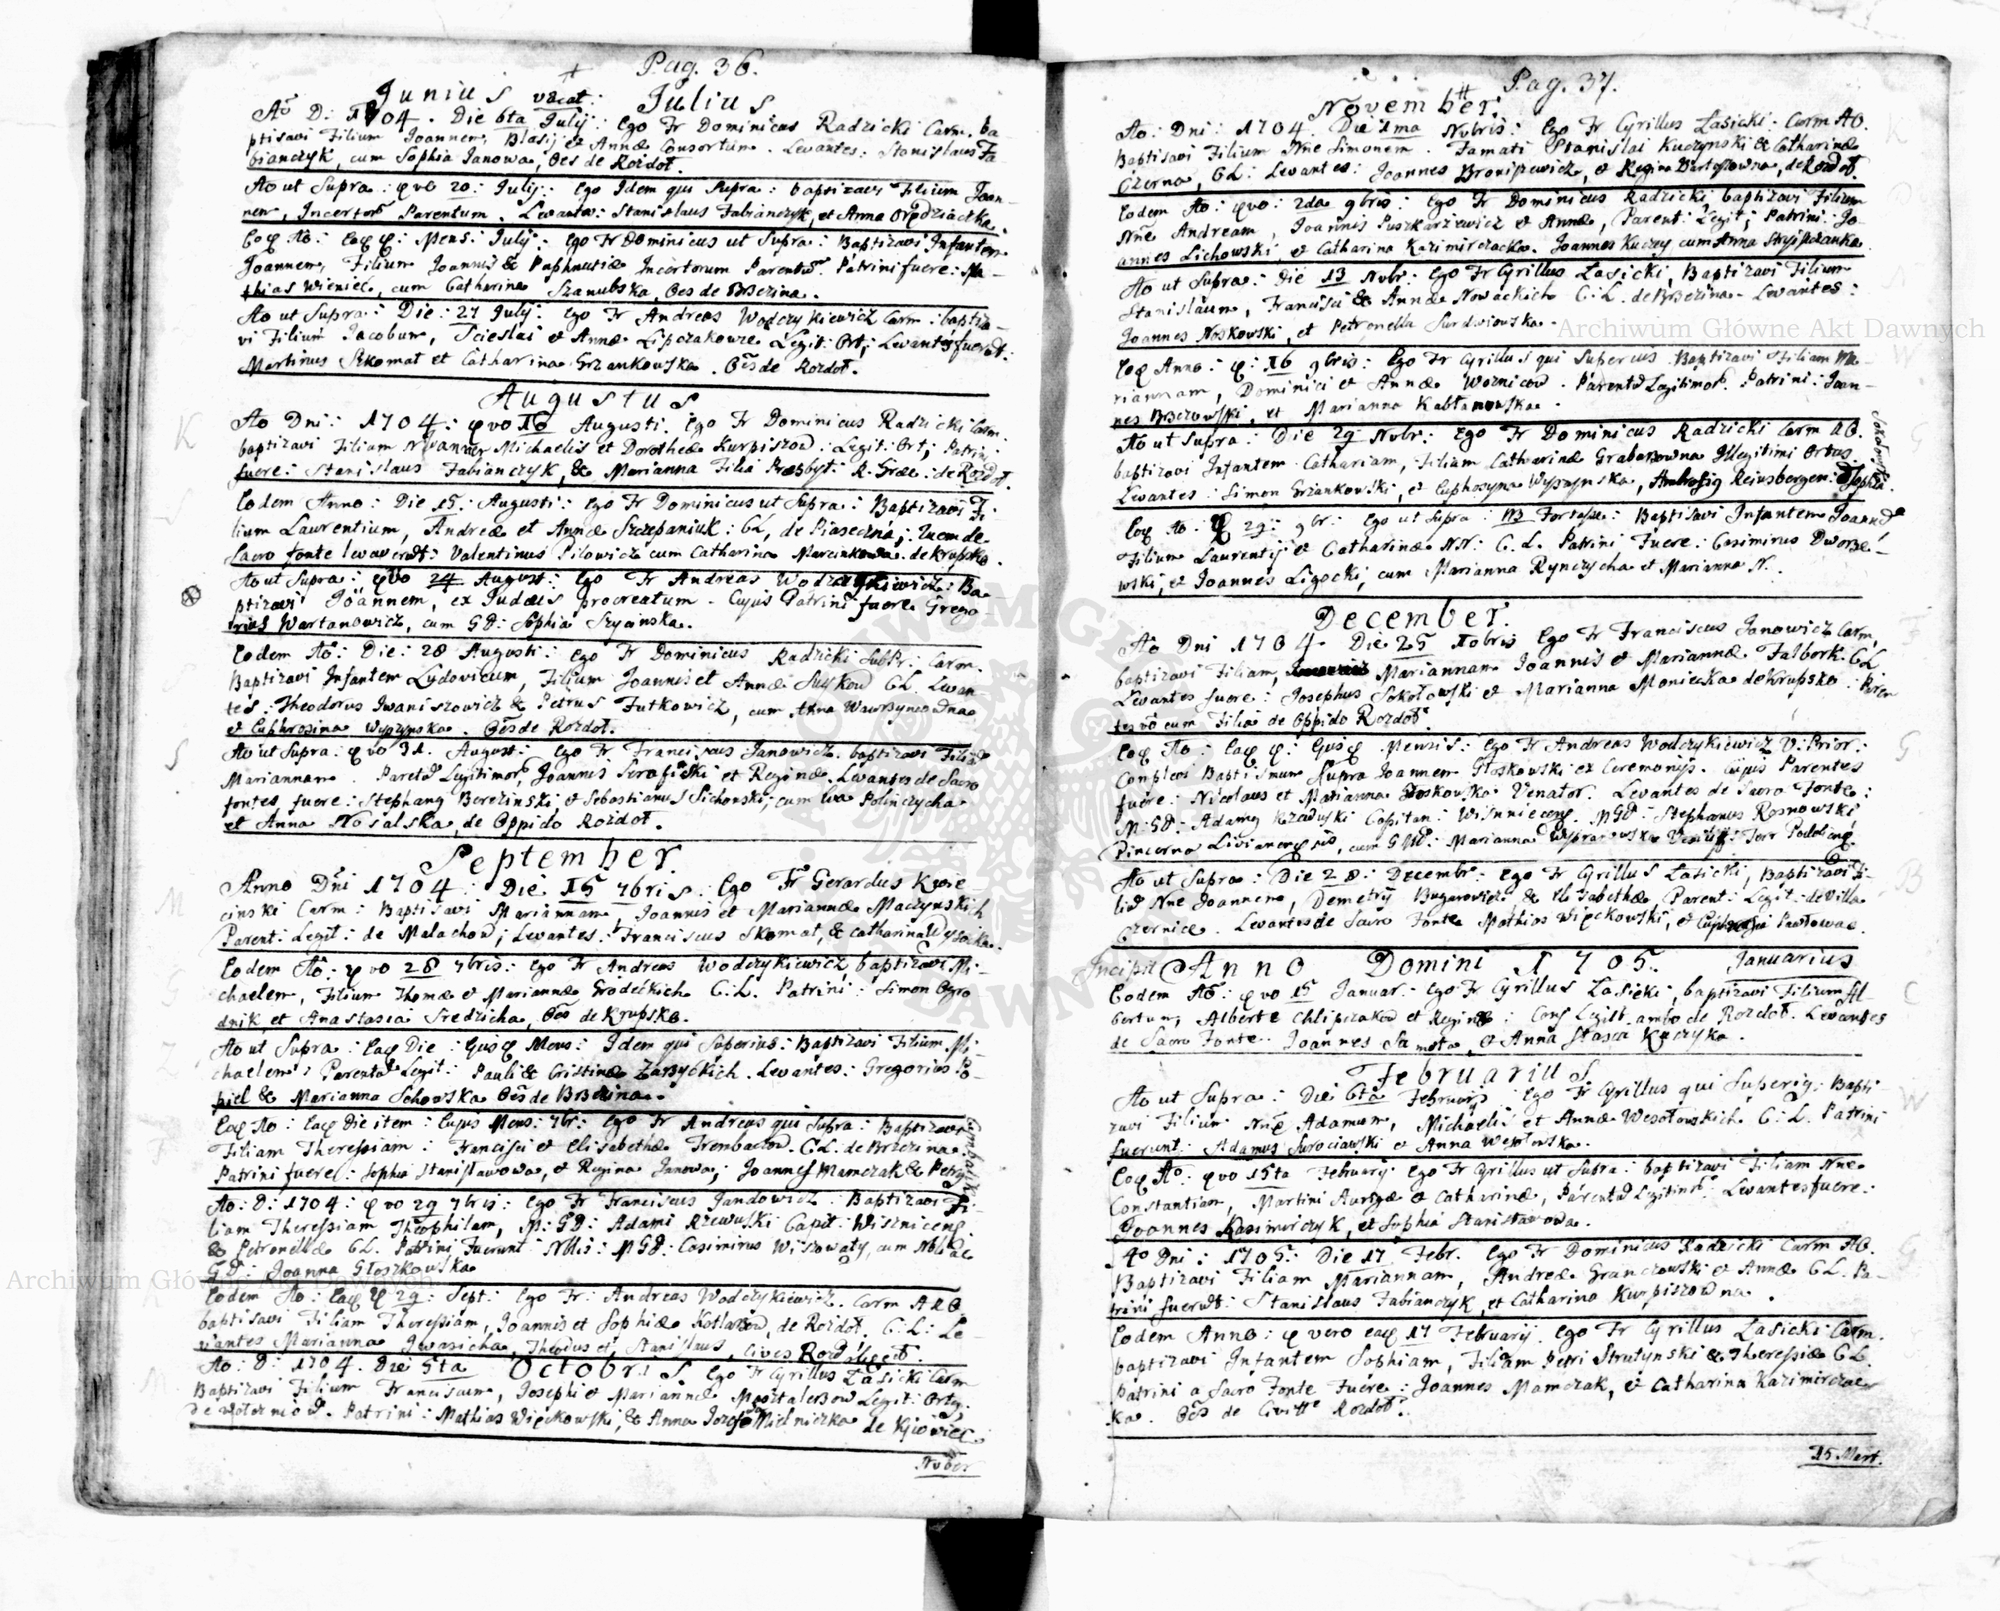 Pag. 36.
Junius vacat: Julius
Ao D: 1704. Die 6ta July: Ego Fr Dominicus Radzicki Carm. ba
ptisavi Filium Joannem, Blasij et Annæ Consortum. Levantes: Stanislaus Fa
bianczyk, cum Sophia Janowa, Oes de Rozdoł.
Ao ut Supra: qvo 20: July: Ego Idem qui Supra: baptizavi Filium Joan-
nem, Incertor Parentum. Levantes: Stanislaus Fabianczyk, et Anna
Eoq Ao: Eaq q: Mens: July: Ego Fr Dominicus ut Supra: Baptizavi Infantem
Joannem, Filium Joannis & Paphnutiæ Incertorum Parentu. Patrini fuere: Ma-
thias Wieniec, cum Catharina Szanubska, Oes de Brzezina.
Ao ut Supra: Die: 27 July: Ego Fr Andreas Wodzykiewicz Carm: baptiza-
vi Filium Jacobum, Scieslai et Annæ Lipczakowie Legit: Ort; Levantes fuerut:
Martinus Skomat et Catharina Grzankowska. Oes de Rozdoł.
Augustus
Ao Dni: 1704: qvo 16 Augusti. Ego Fr Dominicus Radzicki Carm:
baptizavi Filiam Michaelis et Dorotheæ Kurpiszow: Legit: Ort; Patrini
fuere: Stanislaus Fabianczyk, & Marianna Filia Præsbyt: R. Græc: de Rozdoł.
Eodem Anno: Die 15: Augusti: Ego Fr Dominicus ut Supra: Baptizavi Fi-
lium Laurentium, Andreæ et Annæ Szczepaniuk: CL, de Piaseczna; quem de
Sacro fonte levaverut: Valentinus Pilowicz cum Catharina Marcinkowa de Krupsko.
Ao ut Supra: qvo 24 August: Ego Fr Andreas Wodzykiewicz: Ba-
ptizavi Joannem, ex Judæis procreatum. Cujus Patrini fuere Grego-
rius Wartanowicz, cum GD: Sophia
Eodem Ao: Die: 28 Augusti: Ego Fr Dominicus Radzicki SubPr: Carm.
Baptizavi Infantem Ludovicum, Filium Joannis et Annæ CL. Levan-
tes: Theodorus Iwaniszowicz & Petrus Futkowicz, cum Anna
et Euphrosina Wyszynska. Oes de Rozdoł.
Ao ut Supra: qvo 31. August: Ego Fr Franciscus Janowicz baptizavi Filia
Mariannam. Legitimor, Joannis et Reginæ. Levantes de Sacro
fontes fuere: Stephang Berezinski, & Sebastianus Sichowski, cum Eva Polinczycha
et Anna Nosalska, de Oppido Rozdoł.
September.
Anno Dni 1704: Die: 15 7bris: Ego Fr Gerardus Kwie-
cinski Carm: Baptisavi Mariannam, Joannis et Mariannæ Maczynskich
Parent: Legit: de Malachow; Levantes: Franciscus Skomat, & Catharina Wysocka.
Eodem Ao: qvo 28 7bris: Ego Fr Andreas Wodzykiewicz baptizavi Mi-
chaelem, Filium Thomæ et Mariannæ Grodeckich C:L. Patrini: Simon Ogro
dnik, et Anastasia Sredzicha, Oes de Krupsko.
Ao ut Supra: Eaq Die: Ejusq Mens: Idem qui Superius: Baptizavi Filium Mi-
chaelem; Parentu Legit: Pauli & Cristinæ Zarzyckich. Levantes: Gregorius Po-
piel & Marianna Schowska Oes de Brzezina.
Eoq Ao: Eaq Die item: Ejus Mens: 7br: Ego Fr Andreas qui Supra: Baptizavi
Filiam Theressiam: Francisci et Elisabethæ Trembacow. C:L. de Brzezina.
Patrini fuere: Sophia Stanislawowa, et Regina Janowa; Joannes Mamczak &
Ao: D: 1704: qvo 29 7bris: Ego Fr Franciscus Jandowicz: Baptizavi Fi-
liam Theressiam Theophilam, M: GD: Adami Rzewuski Capit: Wiszniceng.
& Petronellæ CL. Patrini Fuerunt: Nblis: MGD: Casimirus Wissowaty, cum Nblia
GD: Joanna Głoszkowska
Eodem Ao: Eaq q 29: Sept: Ego Fr: Andreas Wodzykiewicz. Carm A R O
baptisavi Filiam Theressiam, Joannis et Sophiæ Kotlarzow, de Rozdoł. C:L: Le-
vantes Marianna Iwasicha, Theodus et Stanislaus, Cives Rozdolient.
Ao: D: 1704. Die 5ta Octobris Ego Fr Cyrillus Lasicki Carm
Baptizavi Filium Franciscum, Josephi et Mariannæ Mosztalerzow Legit: Ortg,
de Patrini: Mathias Więckowski, & Anna Mielniczka de Kijowiec
Nober
Pag. 37.
November.
Ao: Dni: 1704. Die 1ma Nvbris: Ego Fr Cyrillus Lasicki: Carm AO.
Baptisavi Filium Nne Simonem. Famati Stanislai Kuczynski & Catharinæ
Czerna, CL: Levantes: Joannes Broniszewicz, et Regina Bartoszowna, de Rozdoł.
Eodem Ao: qvo: 2da 9bris: Ego Fr Dominicus Radzicki baptizavi Filium
Nne Andream, Joannis Puszkarzewicz et Annæ, Parent: Legit; Patrini: Jo
annes Lichowski, et Catharina Kazimirczacka. Joannes Kuczy, cum Anna
Ao ut Supra: Die 13 Nvbr: Ego Fr Cyrillus Lasicki, Baptizavi Filium
Stanislaum, Francisci & Annæ Nowackich C:L. de Brzezina. Levantes:
Joannes Noskowski, et Petronella Surdwiowska.
Eoq Anno: q: 16 9bris: Ego Fr Cyrillus qui Superius. Baptizavi Filiam Ma-
riannam, Dominici et Annæ Woznicow. Parentu Legitimor. Patrini: Joan-
nes Brzezowski, et Marianna Kabłanowska.
Ao ut Supra: Die 29 Nvbr: Ego Fr Dominicus Radzicki Carm AO.
baptizavi Infantem Cathariam, Filium Catharinæ Graberowna Illegitimi Ortus.
Levantes: Simon Grzankowski, et Euphosyna Wyszynska, Ambrosig Reinsbergen: & Sophia
Sokołowska
Eoq Ao: q 29: 9br: Ego ut Supra: Baptisavi Infantem Joanne
Filium Laurentij et Catharinæ NN: C. L. Patrini Fuere: Casimirus Dworze-
wski, et Joannes Ligocki, cum Marianna Rynczycha et Marianna N.
December.
Ao Dni 1704. Die 25 Xobris Ego Fr Franciscus Janowicz Carm,
baptizavi Filiam, Mariannam Joannis et Mariannæ Falbork. CL
Levantes fuere: Josephus Sokołowski et Marianna Moniecka de Krupsko: Paren
tes vo cum Filia de Oppido Rozdoł.
Eoq Ao: Eaq q: Ejusq Mensis: Ego Fr Andreas Wodzykiewicz V: Prior:
Complevi Baptismum Supra Joannem Głoskowski ex Ceremonijs. Cujus Parentes
fuere: Nicolaus et Marianna Głoskowska Venator. Levantes de Sacro Fonte:
M: GD: Adamg Rzewuski Capitan: Wisnnieceng. MGD: Stephanus Rosnowski
Pincerna cum GMD: Marianna Terr Podoliaeg.
Ao ut Supra: Die 28: Decembr: Ego Fr Cyrillus Lasicki, Baptizavi Fi-
liu Nne Joannem, Demetrij Bugarowicz & Elisabethæ, Parent: Legit: de Villa
Czernice. Levantes de Sacro Fonte Mathias Więckowski, et Pawłowa.
Incipit Anno Domini 1705. Januarius
Eodem Ao: qvo 15 Januar: Ego Fr Cyrillus Lasicki, baptizavi Filium Al-
bertum, Alberte Chlipczakow et Reginæ: Conj Legitt ambo de Rozdoł. Levantes
de Sacro Fonte: Joannes Samota, et Anna Stasca Kuczyka.
Februarius
Ao ut Supra: Die 6ta Februarij: Ego Fr Cyrillus qui Superig: Bapti
zavi Filium Nne Adamum, Michaelis et Annæ Wesołowskich C:L. Patrini
fuerunt: Adamus Surociawski et Anna Wesołowska.
Eoq Ao: qvo 15ta Februarij Ego Fr Cyrillus ut Supra: baptizavi Filiam Nne
Constantiam, Martini et Catharinæ, Parentu Legitimr: Levantes fuere:
Joannes Kasimirczyk, et Sophia Stanisławowa.
Ao Dni: 1705: Die 17 Febr. Ego Fr Dominicus Radzicki Carm AO.
Baptizavi Filiam Mariannam, Andreæ Granczowski et Annæ CL. Pa-
trini fuerut: Stanislaus Fabianczyk, et Catharina Kurpiszowna.
Eodem Anno: q vero eaq 17 Februarij. Ego Fr Cyrillus Lasicki Carm.
baptizavi Infantem Sophiam, Filiam Petri Strutynski & Theressiæ CL.
Patrini a Sacro Fonte Fuere: Joannes Mamczak, et Catharina Kazimirczac
ka. Oes de Civitte Rozdoł.
15 Mart.
Archiwum Główne Akt Dawnych
Archiwum Główne Akt Dawnych